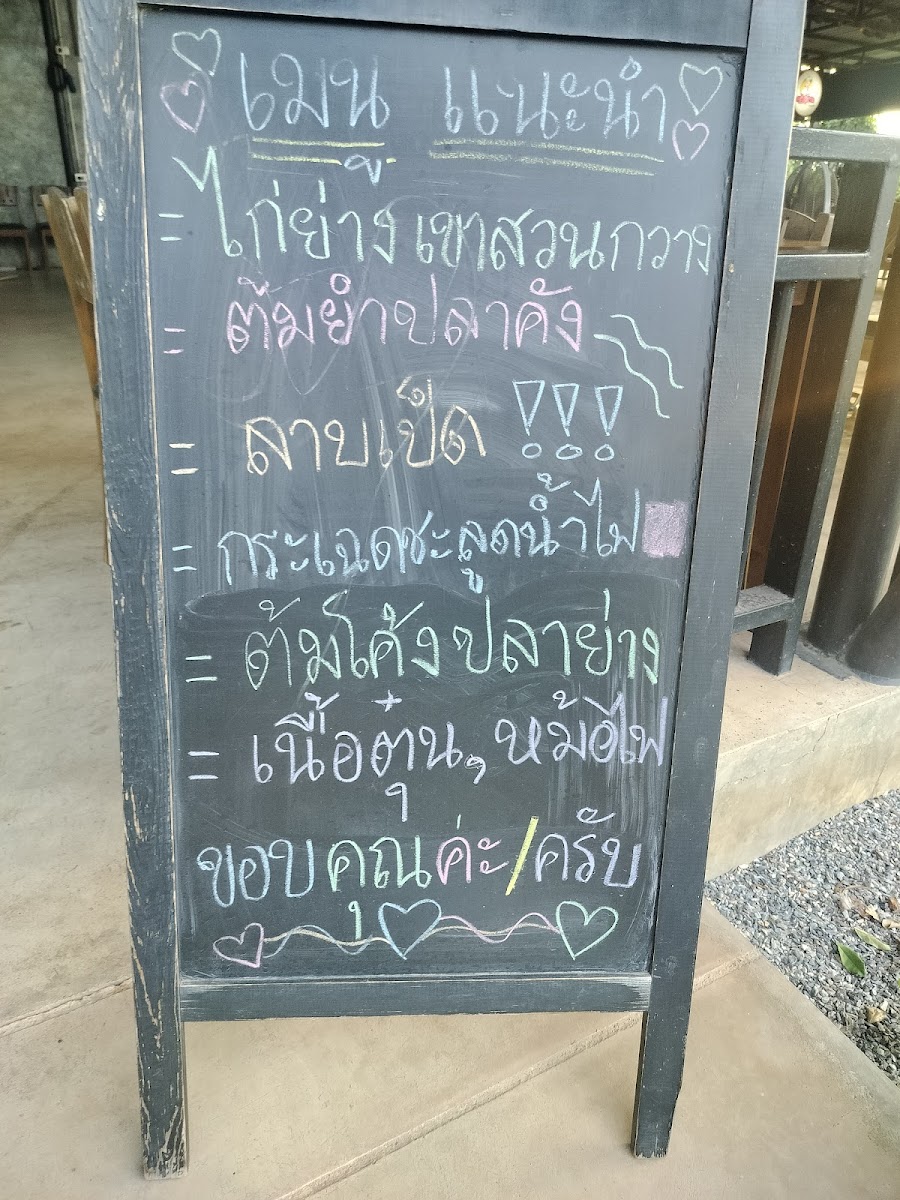 เมนู แนะนำ
= ไก่ย่าง เขาสวนกวาง
= ต้มยำปลาคัง
= ลาบเป็ด !!!
= กระเฉดชะลูดน้ำไฟ
= ต้มโค้งปลาย่าง
= เนื้อตุ๋น, หม้อไฟ
ขอบคุณค่ะ/ครับ